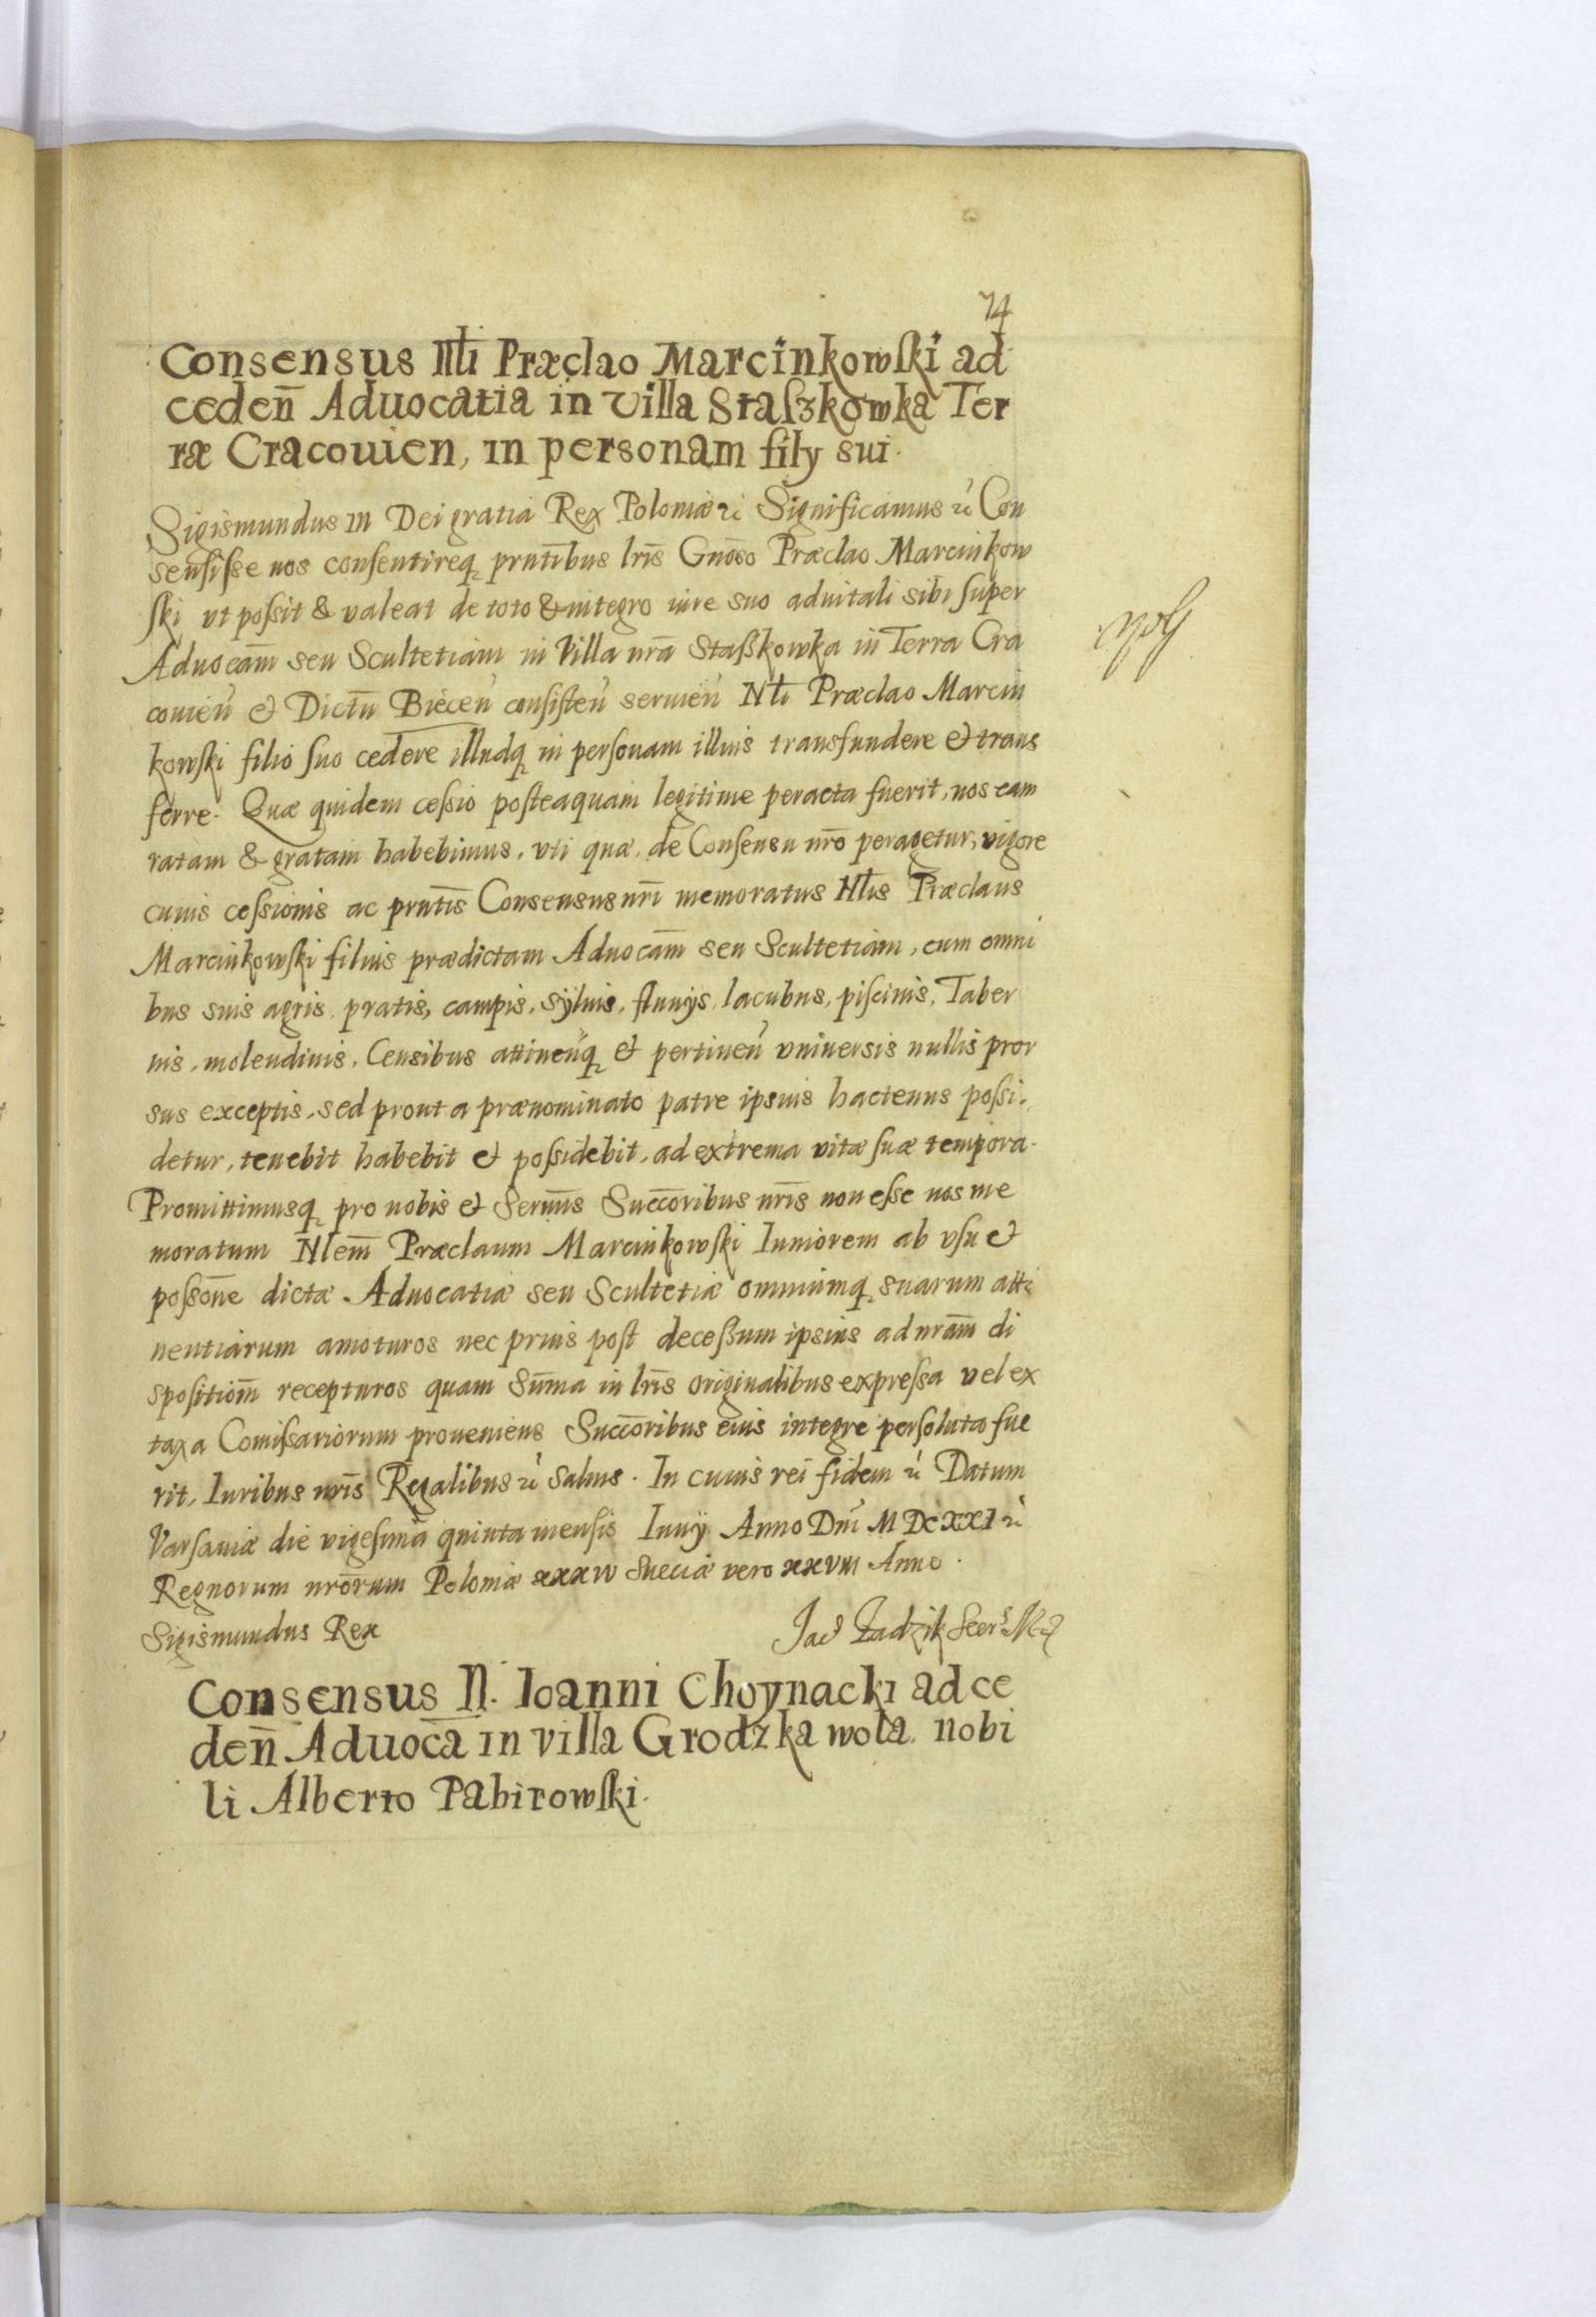 74
Consensus Nłi Præclao Marcinkowſki ad
cedeñ Aduocatia in villa Staſzkowka Ter
ræ Cracouien, in personam fily sui.
Sigismundus III Dei gratia Rex Poloniæ &c Significamus &c Con
sensiſse nos consentireq prntibus lris Gnoso Præclao Marcinkow
ſki vt poſsit & valeat de toto & integro iure suo aduitali sibi super
Aduocam seu Scultetiam in Villa nrā Staßkowka in Terra Cra
couien et Dictu Biecen consisten seruien Nłi Præclao Marcin
kowſki filio suo cedere illudq in personam illius transfundere et trans
ferre. Quæ quidem ceſsio posteaquam legitime peracta fuerit, nos eam
ratam & gratam habebimus, vti quæ de Consensu nrō peragetur, vigore
cuius ceſsionis ac prntis Consensus nri memoratus Nłis Præclaus
Marcinkowſki filius prædictam Aduocam seu Scultetiam, cum omni
bus suis agris, pratis, campis, syluis, fluuÿs, lacubus, piscinis, Taber
nis, molendinis, Censibus attinenq et pertinen vniuersis nullis pror
sus exceptis, sed prout a prænominato patre ipsius hactenus poſsi,
detur, tenebit habebit et poſsidebit, ad extrema vitæ suæ tempora.
Promittimusq pro nobis et Sermis Succoribus nris non eſse nos me
moratum Nlem Præclaum Marcinkowſki Iuniorem ab vsu et
poſsone dictæ Aduocatiæ seu Scultetiæ omniumq suarum atti
nentiarum amoturos nec prius post deceſsum ipsius ad nram di
spositiom recepturos quam Suma in lris originalibus expreſsa vel ex
taxa Comiſsariorum proueniens Succoribus eius integre persoluta fue
rit, Iuribus nris Regalibus &c saluis. In cuius rei fidem &c Datum
Varsauiæ die vigesima quinta mensis Iunÿ Anno Dni MDCXXI &c
Regnorum nrorum Poloniæ xxxiv Sueciæ vero xxviii Anno.
Sigismundus Rex Jac Zadzik Secr
Consensus N. Ioanni Choynacki ad ce
deñ Aduocā in villa Grodzka wola nobi
li Alberto Pabirowſki.